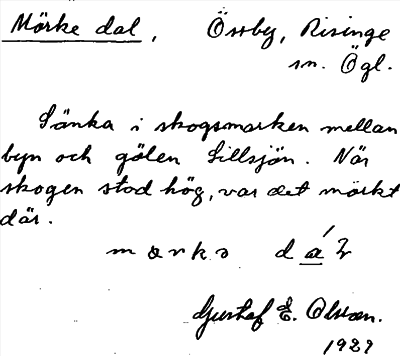 Mörke dal, Össby, Risinge
sn. Ögl.
Sänka i skogsmarken mellan
byn och gölen Lillsjön. När
skogen stod hög, var det mörkt
där.
Gustaf E. Olsson.